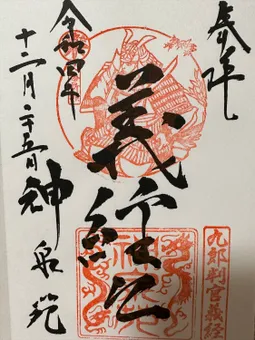 奉拝
九郎判官義経
義経公
令和四年
十二月二十五日
神泉苑